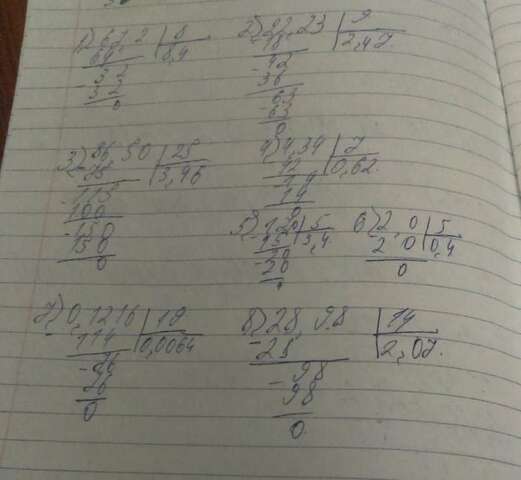 1) 67,2 | 8
64 | 8,4
- 32
32
0
2) 22,23 | 9
18 | 2,47.
- 42
36
- 63
63
0
3) 86,50 | 25
- 75 | 3,46
- 115
100
- 150
150
0
4) 4,34 | 7
42 | 0,62.
- 14
14
0
5) 17,0 | 5
- 15 | 3,4
- 20
20
0
6) 2,0 | 5
2 0 | 0,4
0
7) 0,1216 | 19
- 114 | 0,0064
- 76
76
0
8) 28,98 | 14
- 28 | 2,07.
- 98
98
0